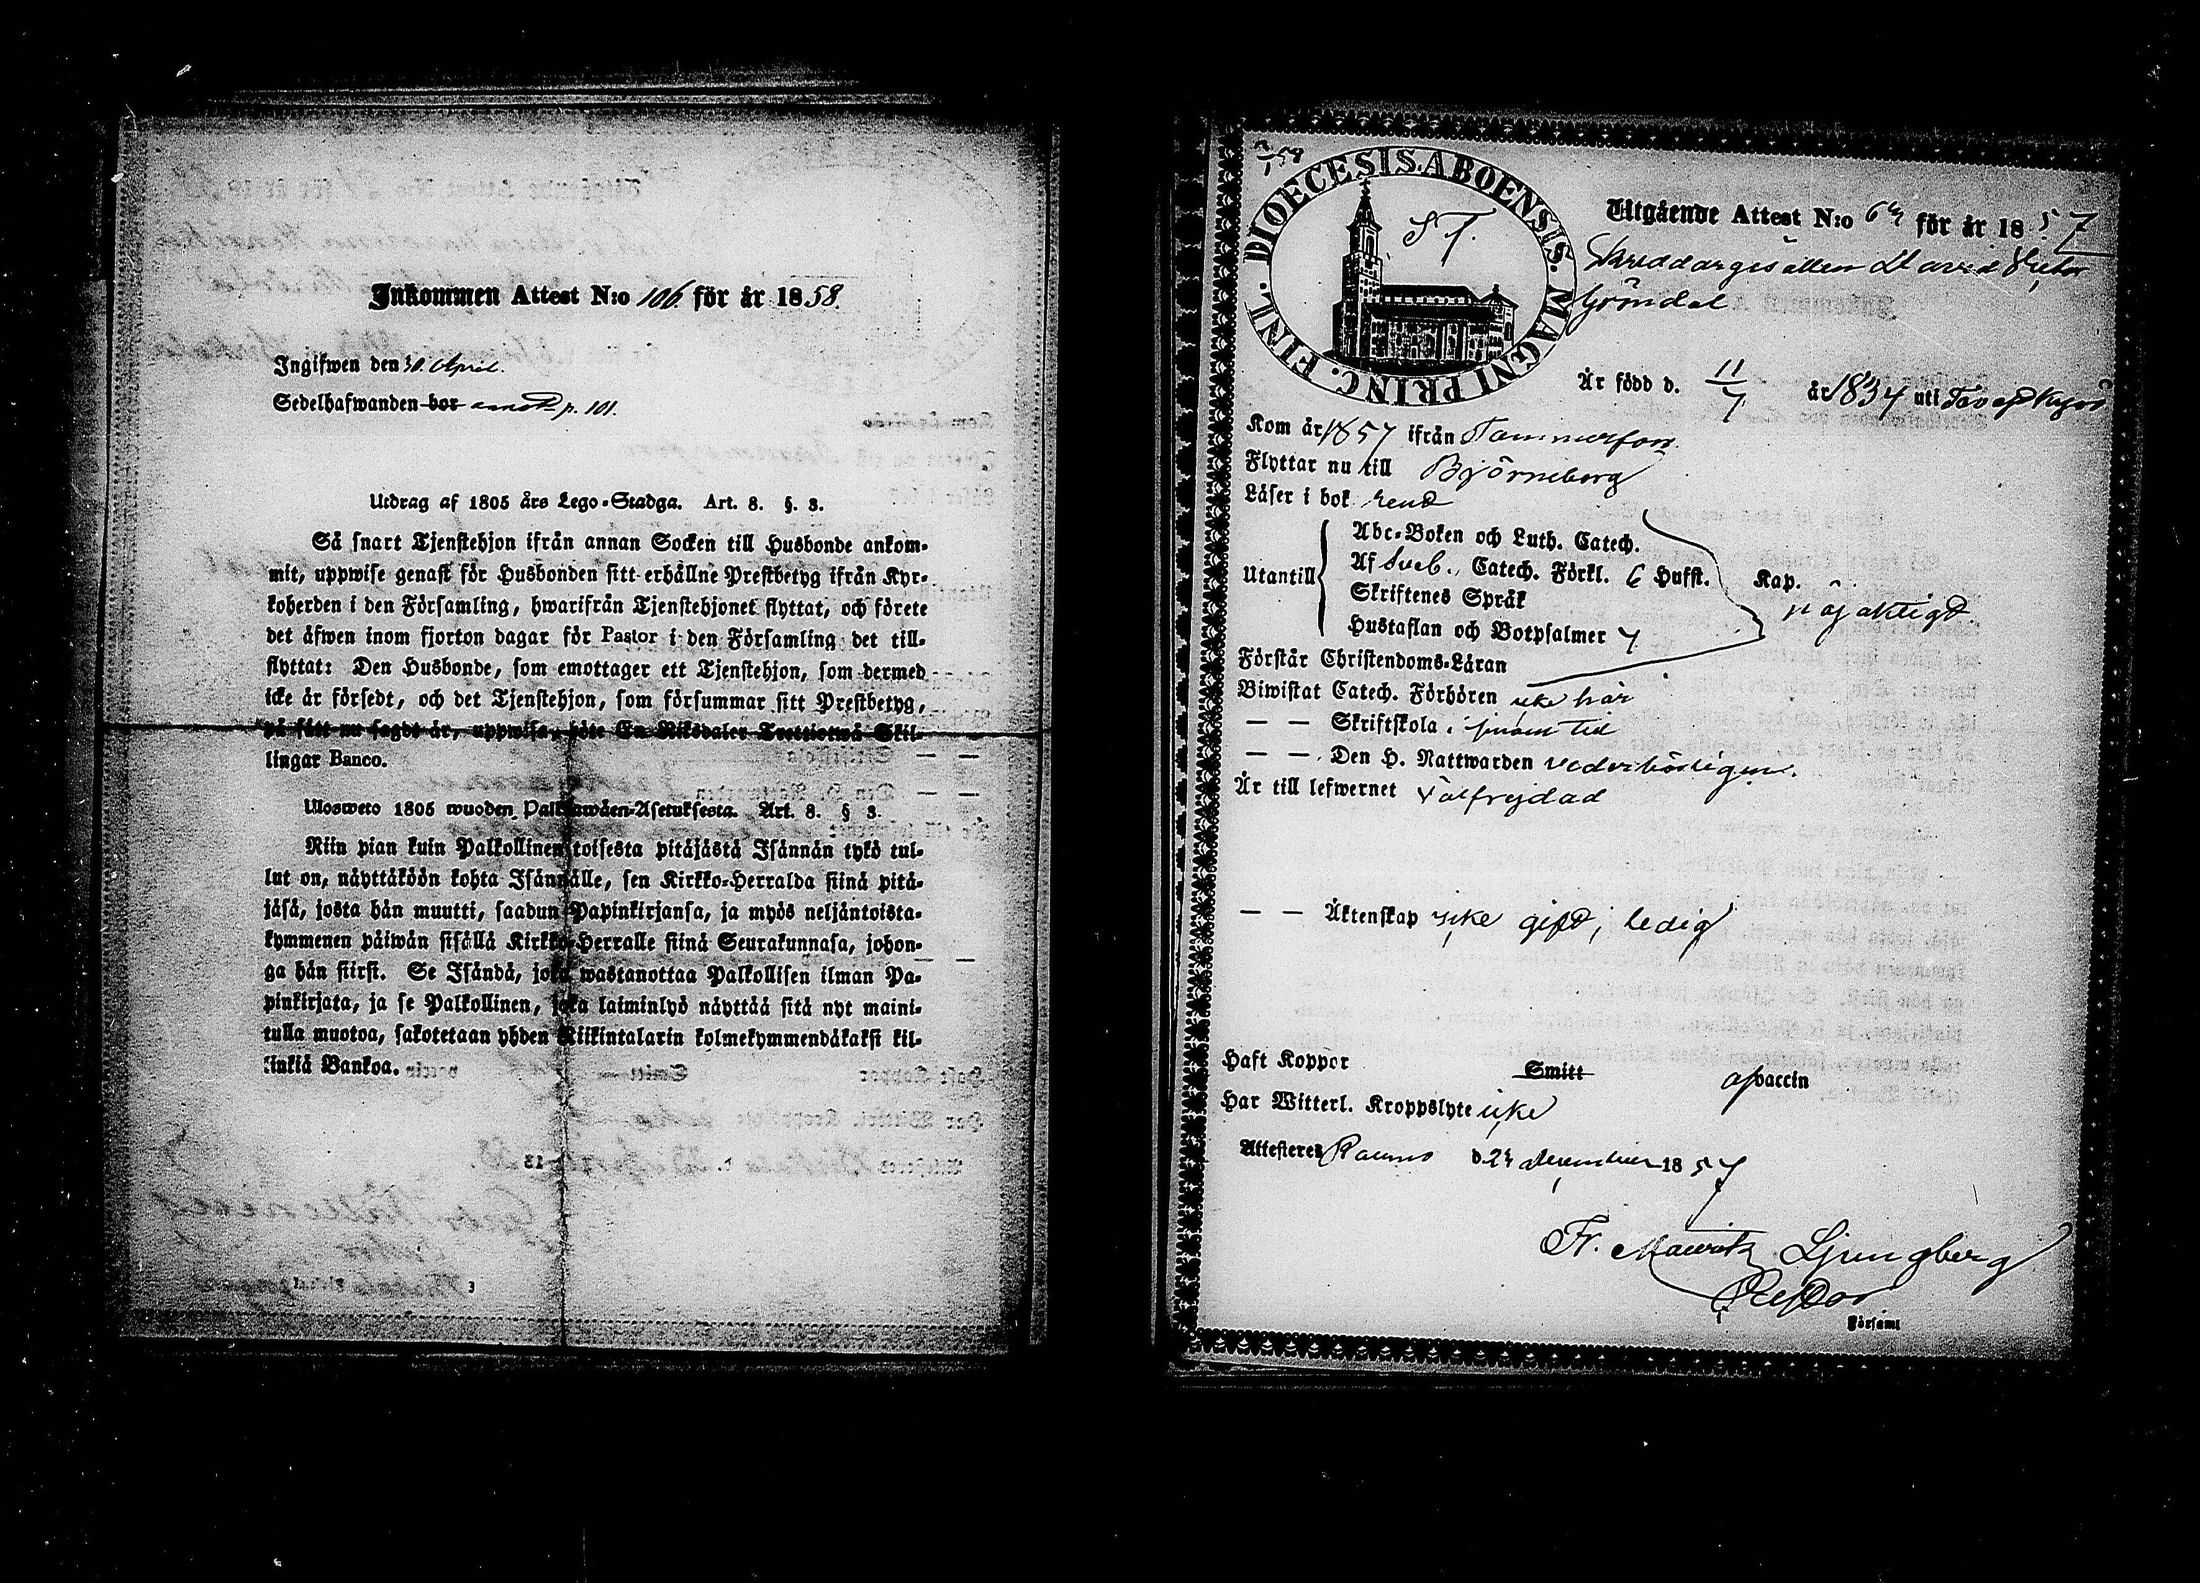 Inkommen Attest N:o 106. för år 1858.
Ingifwen den 30. April.
Sedelhafwanden bor annot. p. 101.
Utdrag af 1805 års Lego-Stadga. Art. 8. §. 3.
Så snart Tjenstehjon ifrån annan Socken till Husbonde ankom-
mit, uppwise genast för Husbonden sitt erhållne Prestbetyg ifrån Kyr-
koherden i den Församling, hwarifrån Tjenstehjonet flyttat, och förete
det äfwen inom fjorton dagar för Pastor i den Församling det till-
flyttat: Den Husbonde, som emottager ett Tjenstehjon, som dermed
icke är försedt, och det Tjenstehjon, som försummar sitt Prestbetyg,
på sätt nu sagdt är, uppwisa, böte En Riksdaler Trettiotwå Skil-
lingar Banco.
Ulosweto 1805 wuoden Palkkawäen-Asetuksesta. Art. 8. § 3.
Niin pian kuin Palkollinen toisesta pitäjästä Isännän tykö tul-
lut on, näyttäköön kohta Isännälle, sen Kirkko-Herralda siinä pitä-
jäsä, josta hän muutti, saadun Papinkirjansa, ja myös neljäntoista-
kymmenen päiwän sisällä Kirkko-Herralle siinä Seurakunnasa, johon-
ga hän siirsi. Se Isändä, joka wastanottaa Palkollisen ilman Pa-
pinkirjata, ja se Palkollinen, joka laiminlyö näyttää sitä nyt maini-
tulla muotoa, sakotetaan yhden Riikintalarin kolmekymmendäkaksi kil-
linkiä Bankoa.
DIOECESIS. ABOENSIS. MAGNI PRINC. FINL.
Utgående Attest N:o 64 för år 1857
Skreddargesällen David Victor
Gröndal
Är född d. 11/7 år 1834 uti Tavastkyro
Kom år 1857 ifrån Tammerfors.
Flyttar nu till Björneborg
Läser i bok rend
Utantill
Abc-Boken och Luth. Catech.
Af Sveb. Catech. Förkl. 6 Hufst. Kap.
Skriftenes Språk
Hustaflan och Botpsalmer 7
nöjaktigt.
Förstår Christendoms-Läran
Biwistat Catech. Förhören icke här
— — Skriftskola i sinom tid
— — Den H. Nattwarden vederbörligen.
Är till lefwernet välfrejdad
— — Äktenskap icke gift, ledig
Haft Koppor Smitt af vaccin
Har Witterl. Kroppslyte icke
Attesteres Raumo d. 24 december 1857
Fr. Mauritz Ljungberg
Pastor
Församl